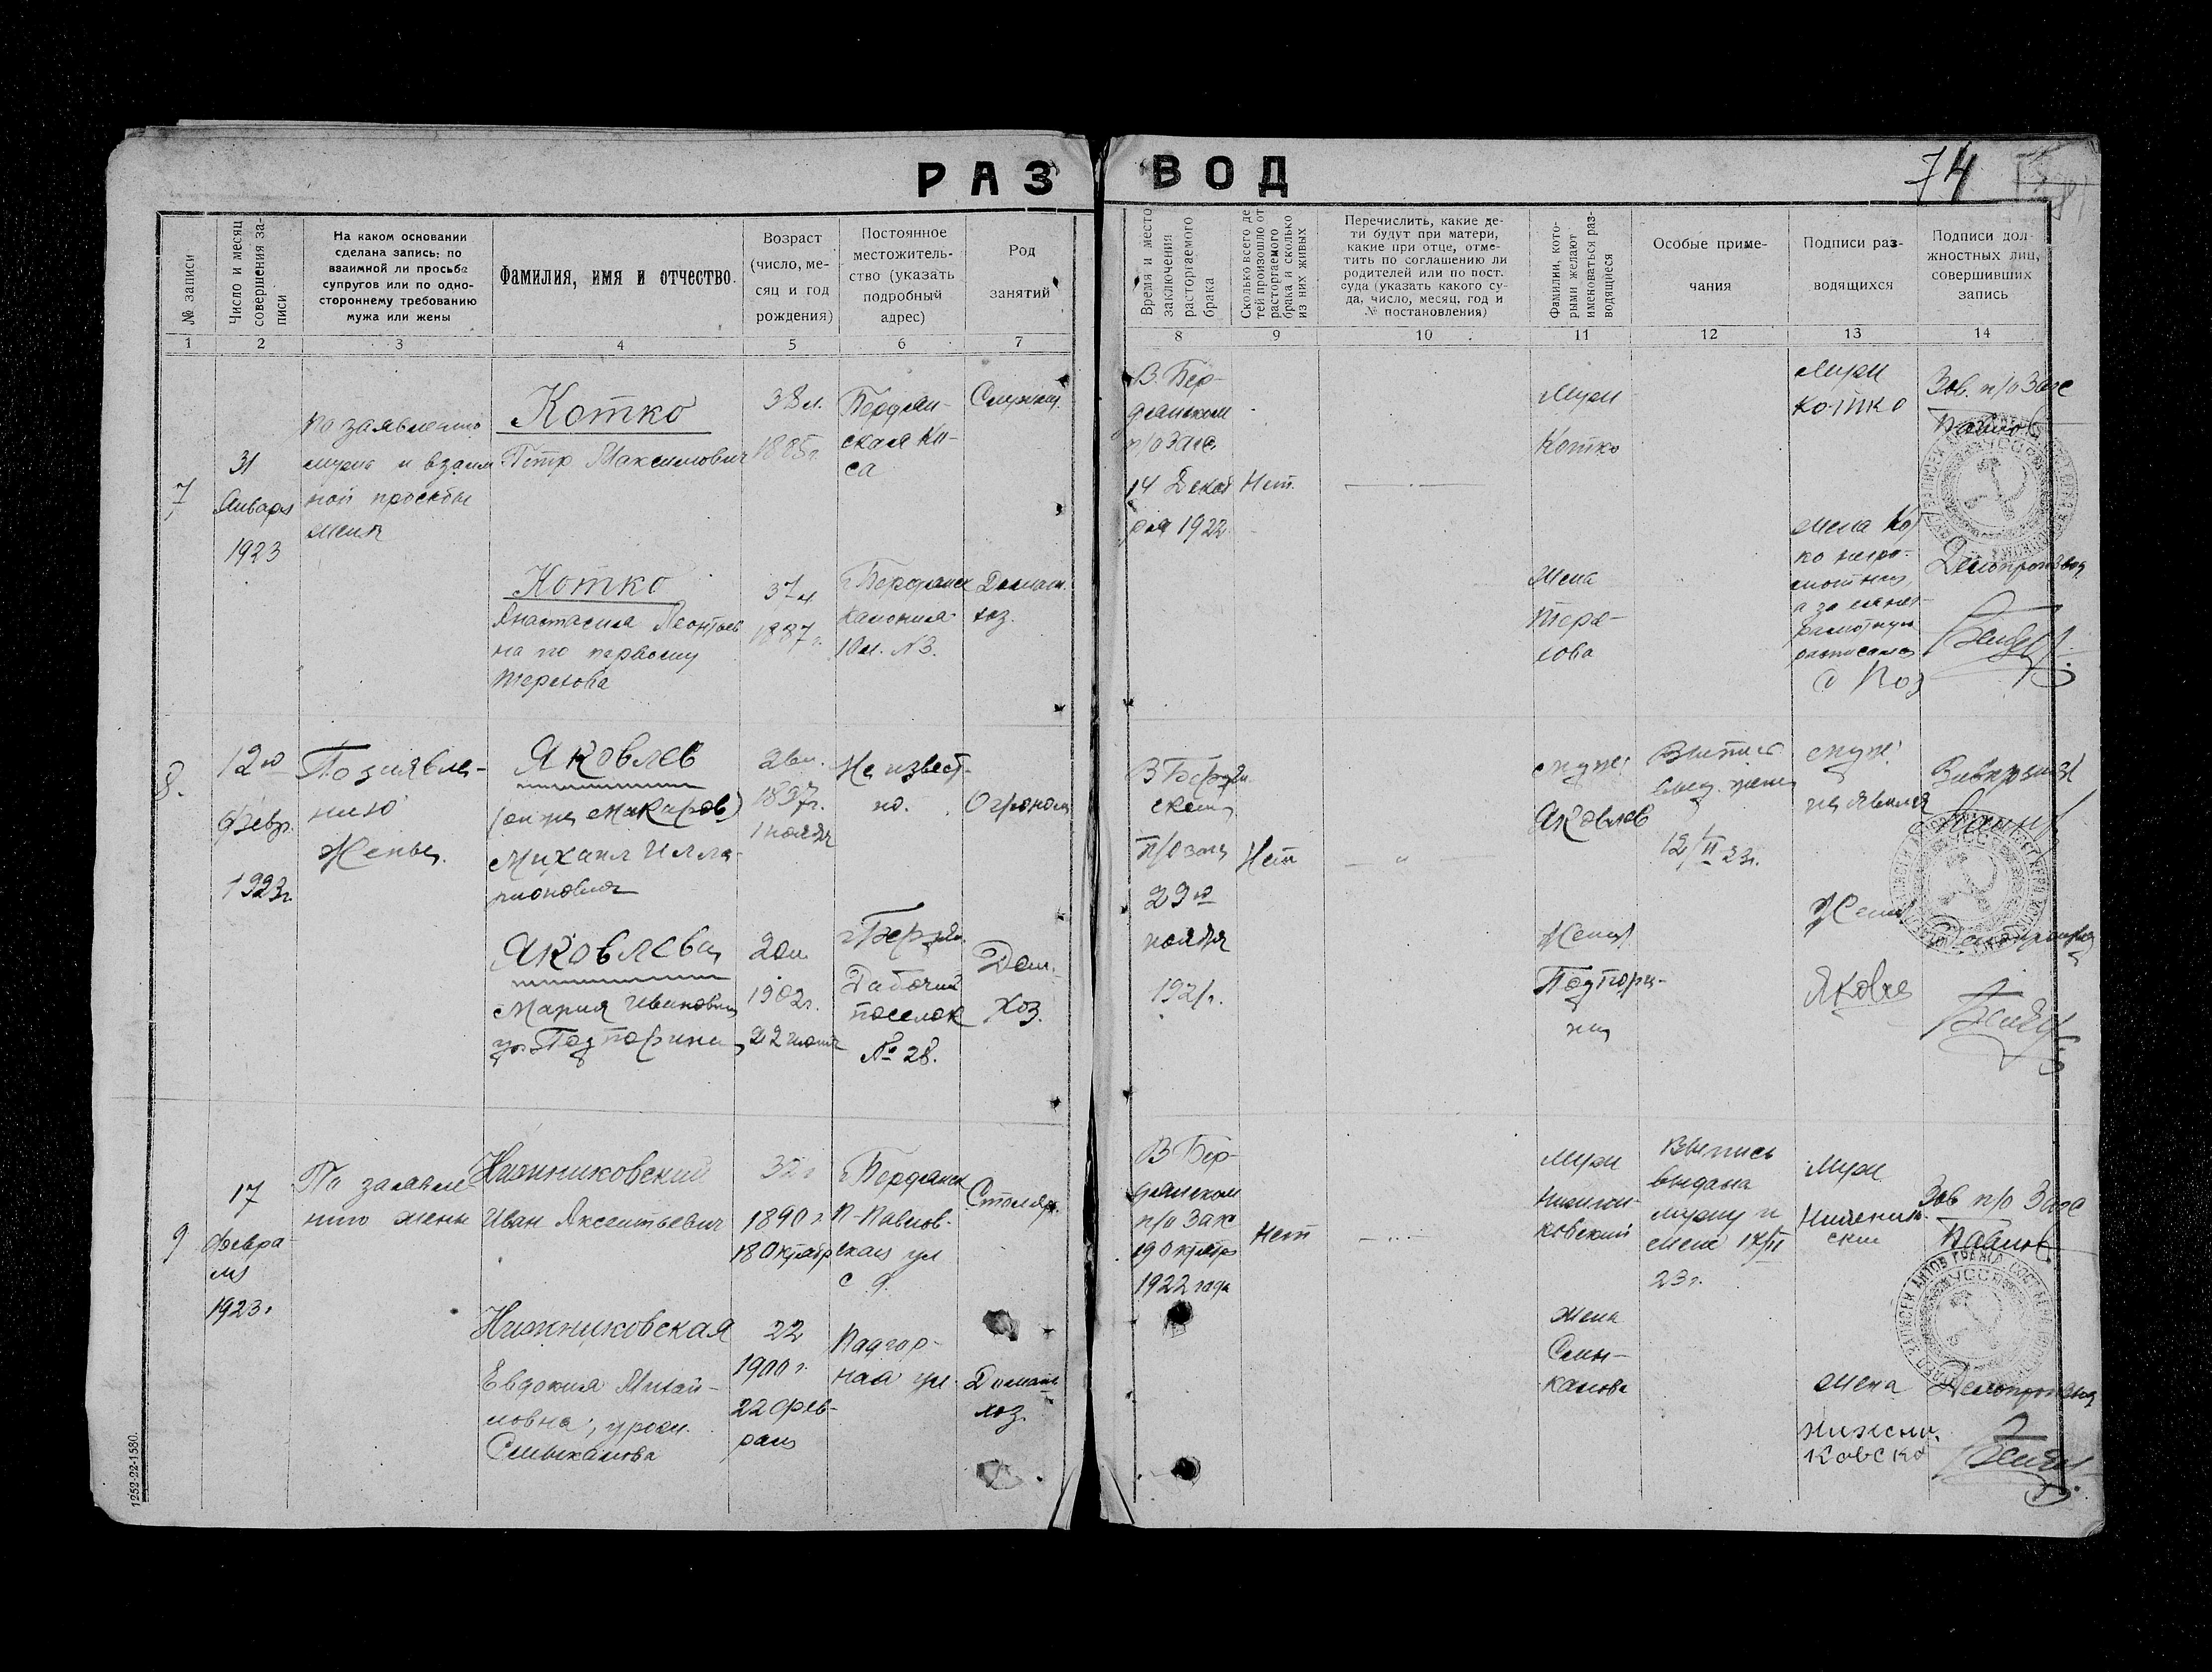 РАЗВОД
74
№ записи
Число и месяц
совершения за-
писи
На каком основании
сделана запись: по
взаимной ли просьбе
супругов или по одно-
стороннему требованию
мужа или жены
Фамилия, имя и отчество.
Возраст
(число, ме-
сяц и год
рождения)
Постоянное
местожитель-
ство (указать
подробный
адрес)
Род
занятий
Время и место
заключения
расторгаемого
брака
Сколько всего де
тей произошло от
расторгаемого
брака и сколько
из них живых
Перечислить, какие де-
ти будут при матери,
какие при отце, отме-
тить по соглашению ли
родителей или по пост.
суда (указать какого су-
да, число, месяц, год и
№ постановления)
Фамилии, кото-
рыми желают
именоваться раз-
водящиеся
Особые приме-
чания
Подписи раз-
водящихся
Подписи дол-
жностных лиц,
совершивших
запись
1 2 3 4 5 6 7 8 9 10 11 12 13 14
7
31
Января
1923
по заявлению
мужа и взаим
ной просьбы
жены
Котко
Петр Максимович
38 л.
1885 г.
Бердян-
ская Ко-
са
Служащ.
В. Бер-
дянском
п/о Загс
14 Декаб
ря 1922
Нет.
Муж
Котко
Муж
Котко
Зав. п/о Загс
Котко
Анастасия Леонтьев
на по первому
Терехова
37 л.
1887 г.
г. Бердянск
Колония
10 л. №3.
Домаш.
хоз.
Жена
Тере-
хова
жена Ко
ко негра-
мотная,
а за негр
расписался
Делопроизвод
8.
12го
Февр.
1923г
По заявле-
нию
Жены.
Яковлев
(он же Макаров)
Михаил Илла-
рионович
1897г.
1 ноября
Не извест-
но.
Огроном
В Бердян.
ском
п/о загс
29го
ноября
1921г.
Нет
муж:
Яковлев
Выпись
выд. жене
12/II 23г.
муж:
не явился
Яковлева
Мария Ивановна
ур. Подпорина
20 л.
1902г.
22 июля
г. Бердян.
Рабочий
поселок
№ 28.
Дом.
хоз.
Жена
Подпори-
на
Жена
Яковле
Делопроизвод
9
17
Февра
ля
1923 г
По заявле-
нию жены
Нижниковский
Иван Аксентьевич
32 г
1890 г.
18 Октября
г. Бердянск
П-Павлов-
ская ул
с д.
Столяр.
В Бер-
дянском
п/о Загс
19 Октября
1922 года
Нет
Муж
Нижни-
ковский
Выпись
выдана
мужу и
жене 17/II
23 г.
Муж
Зав п/о Загс
Павлов
Нижниковская
Евдокия Михай-
ловна, урожд.
Смыкалова
22
1900 г.
22 фев-
раля
Нагор-
ная ул.
Домаш
хоз.
Жена
Смы-
калова
жена
нижени.
ковско
Делопроизвод
1252-22-1580.